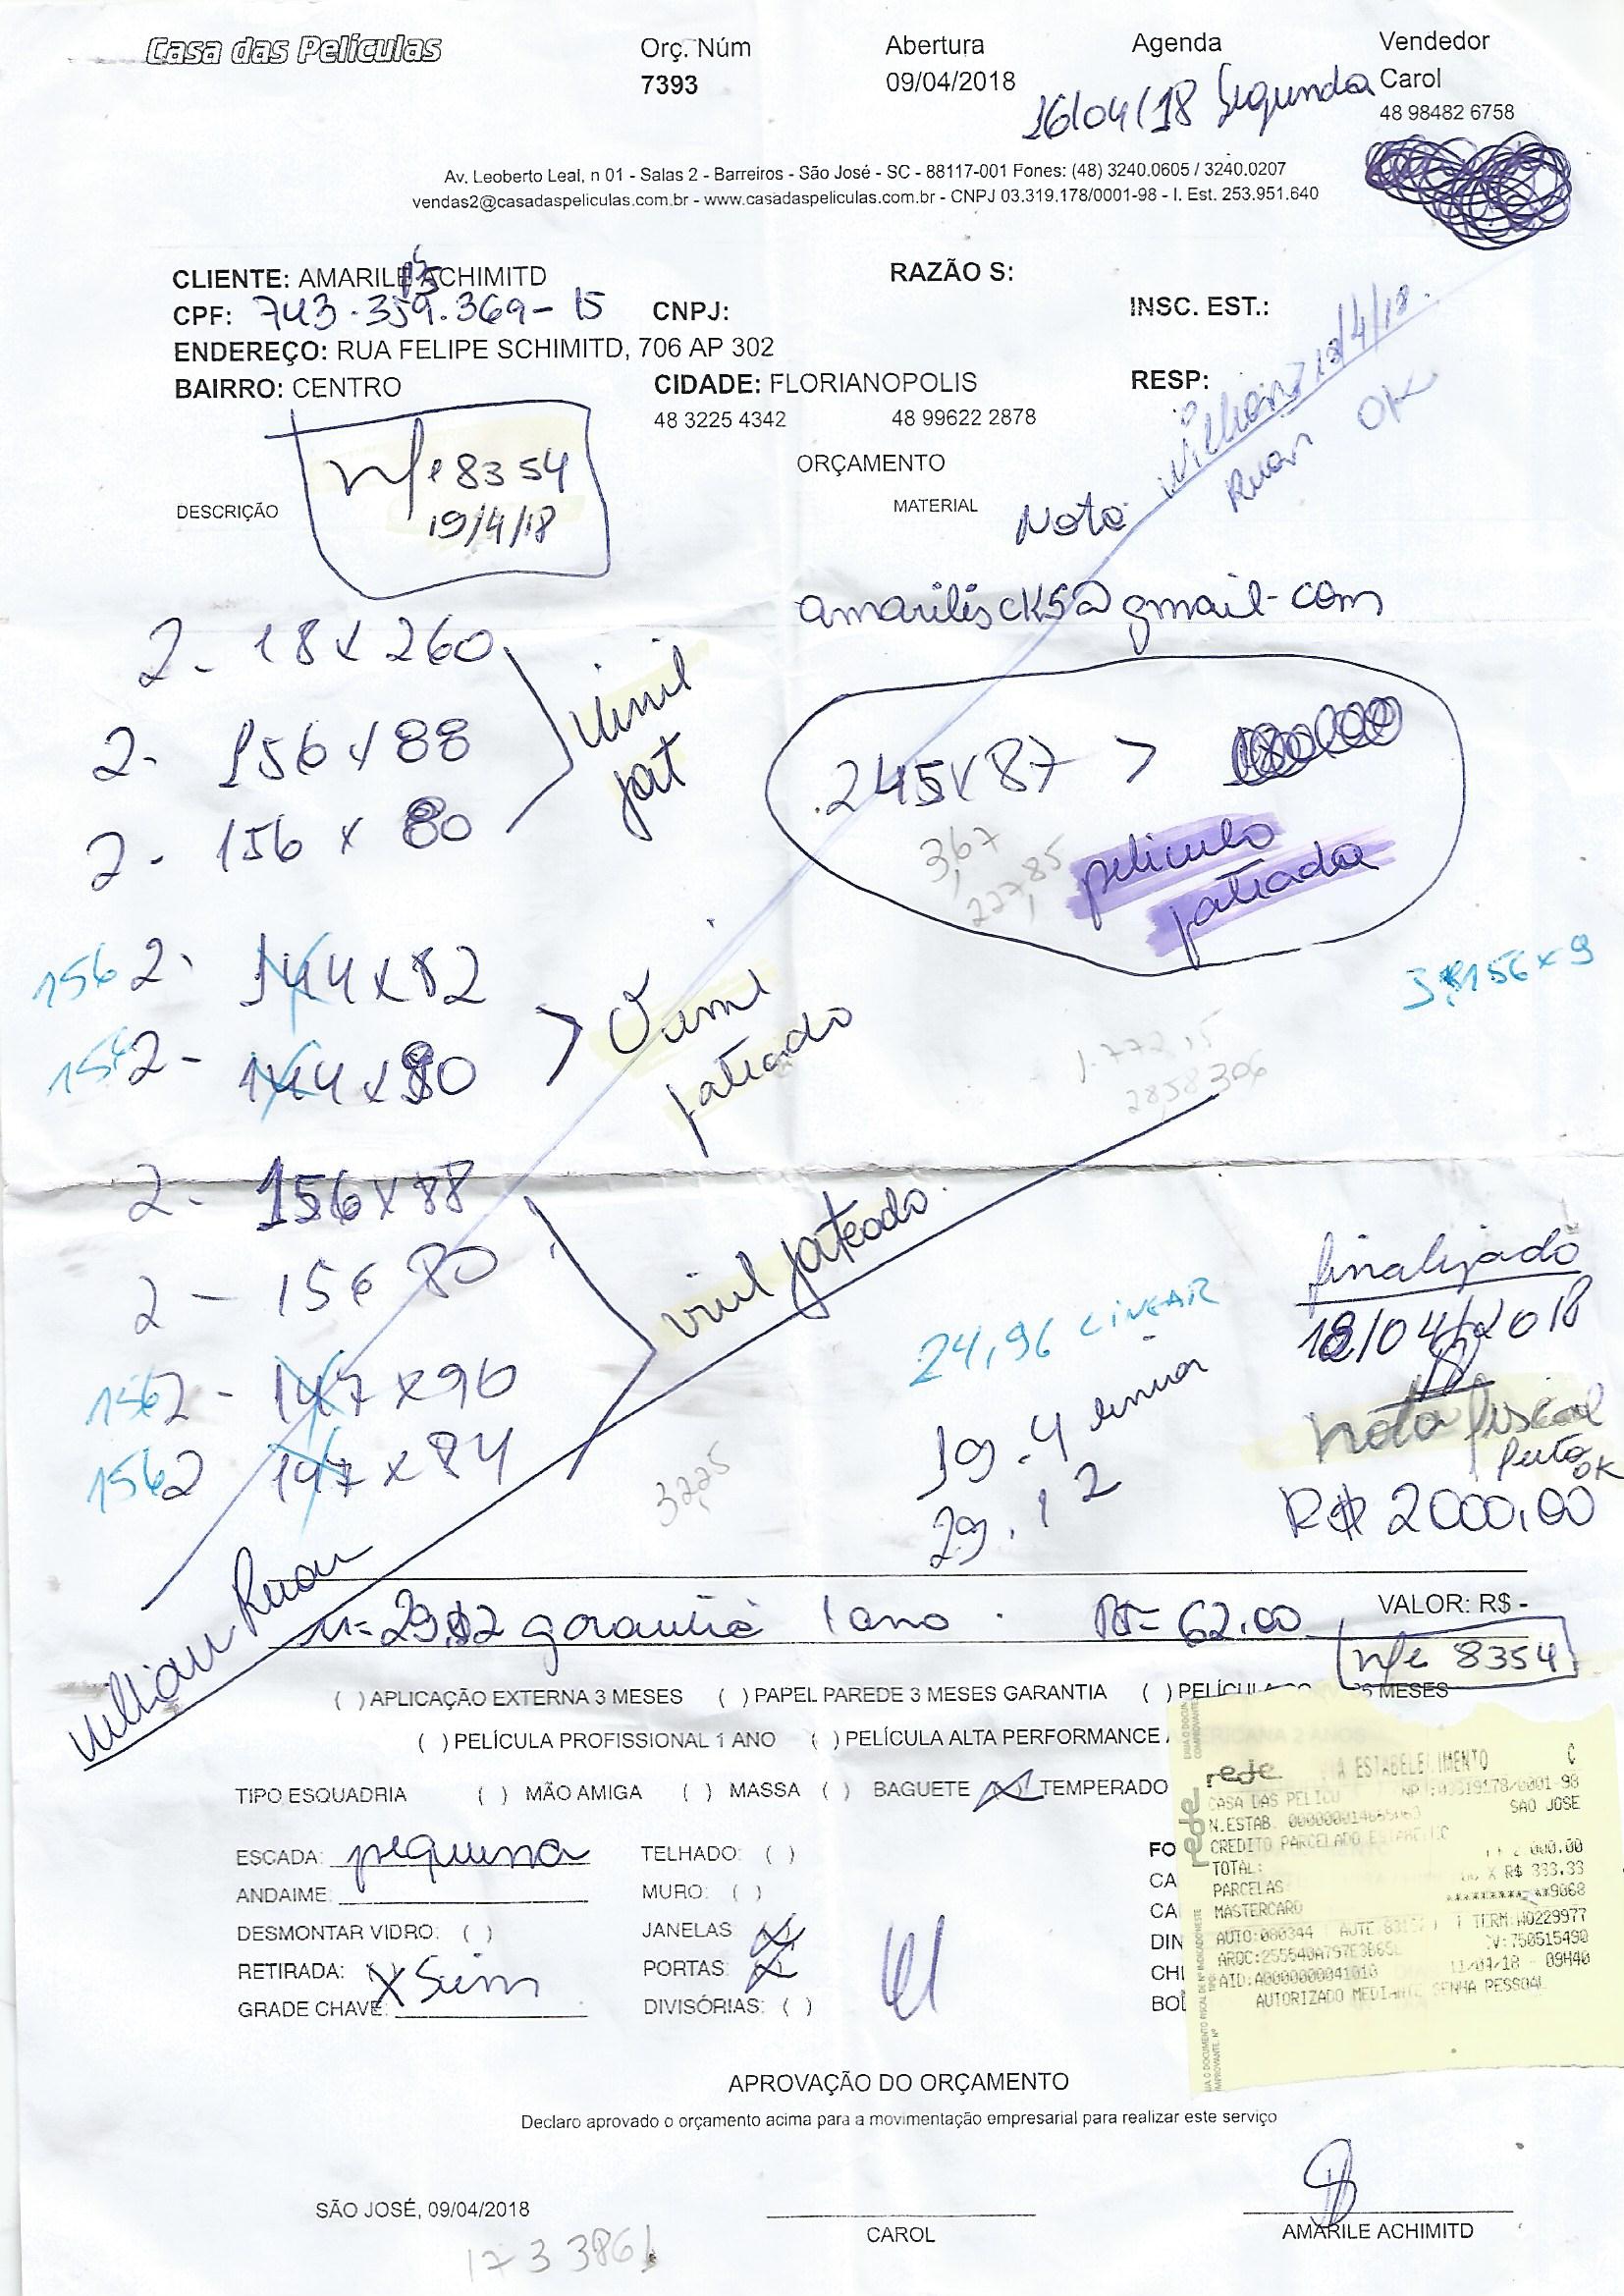 Casa das Películas
Orç. Núm
Abertura
Agenda
Vendedor
7393
09/04/2018
16/04/18 Segunda
Carol
48 98482 6758
Av. Leoberto Leal, n 01 - Salas 2 - Barreiros - São José - SC - 88117-001 Fones: (48) 3240.0605 / 3240.0207
vendas2@casadaspeliculas.com.br - www.casadaspeliculas.com.br - CNPJ 03.319.178/0001-98 - I. Est. 253.951.640
CLIENTE: AMARILE ACHIMITD
RAZÃO S:
CPF: 743.359.369-15
CNPJ:
INSC. EST.:
ENDEREÇO: RUA FELIPE SCHIMITD, 706 AP 302
BAIRRO: CENTRO
CIDADE: FLORIANOPOLIS
RESP:
48 3225 4342
48 99622 2878
Ruan OK
ORÇAMENTO
nfe 8354
19/4/18
DESCRIÇÃO
MATERIAL
Nota
amarilisck5@gmail.com
2- 18 x 260
2- 156 x 88
2- 156 x 80
Vinil
jat
245 x 87 >
3,67
227,85
pelicula
jateada
156 2- 144 x 82
156 2- 144 x 80
jateado
3,8156 x 9
1.772,15
2858306
2- 156 x 88
2 - 156 80
156 2 - 147 x 90
156 2 147 x 84
vinil jateado
24,96 LINEAR
19.4 linear
29.12
3225
finalizado
18/04/2018
Nota fiscal
feita
OK
R$ 2000,00
Willian Ruan
29,12 garantia 1 ano
R$= 62,00
VALOR: R$ -
nfe 8354
( ) APLICAÇÃO EXTERNA 3 MESES ( ) PAPEL PAREDE 3 MESES GARANTIA ( ) PELÍCULA MESES
( ) PELÍCULA PROFISSIONAL 1 ANO ( ) PELÍCULA ALTA PERFORMANCE AMERICANA 2 ANOS
TIPO ESQUADRIA ( ) MÃO AMIGA ( ) MASSA ( ) BAGUETE (X) TEMPERADO
ESCADA: pequena
TELHADO: ( )
FO
ANDAIME:
MURO: ( )
CA
DESMONTAR VIDRO: ( )
JANELAS (X)
CA
DIN
RETIRADA: X Sim
PORTAS: (X)
CH
GRADE CHAVE:
DIVISÓRIAS: ( )
BOL
rede
VIA ESTABELECIMENTO
C
CASA DAS PELICU
SAO JOSE
N.ESTAB.
CREDITO PARCELADO
TOTAL:
2.000.00
PARCELAS
X R$ 333.33
MASTERCARD
9068
AUTO:080344
TERM:W0229977
CV:750515490
AID:A0000000041010
11/04/18 - 09H40
AUTORIZADO MEDIANTE SENHA PESSOAL
APROVAÇÃO DO ORÇAMENTO
Declaro aprovado o orçamento acima para a movimentação empresarial para realizar este serviço
SÃO JOSÉ, 09/04/2018
CAROL
AMARILE ACHIMITD
17 3 3861